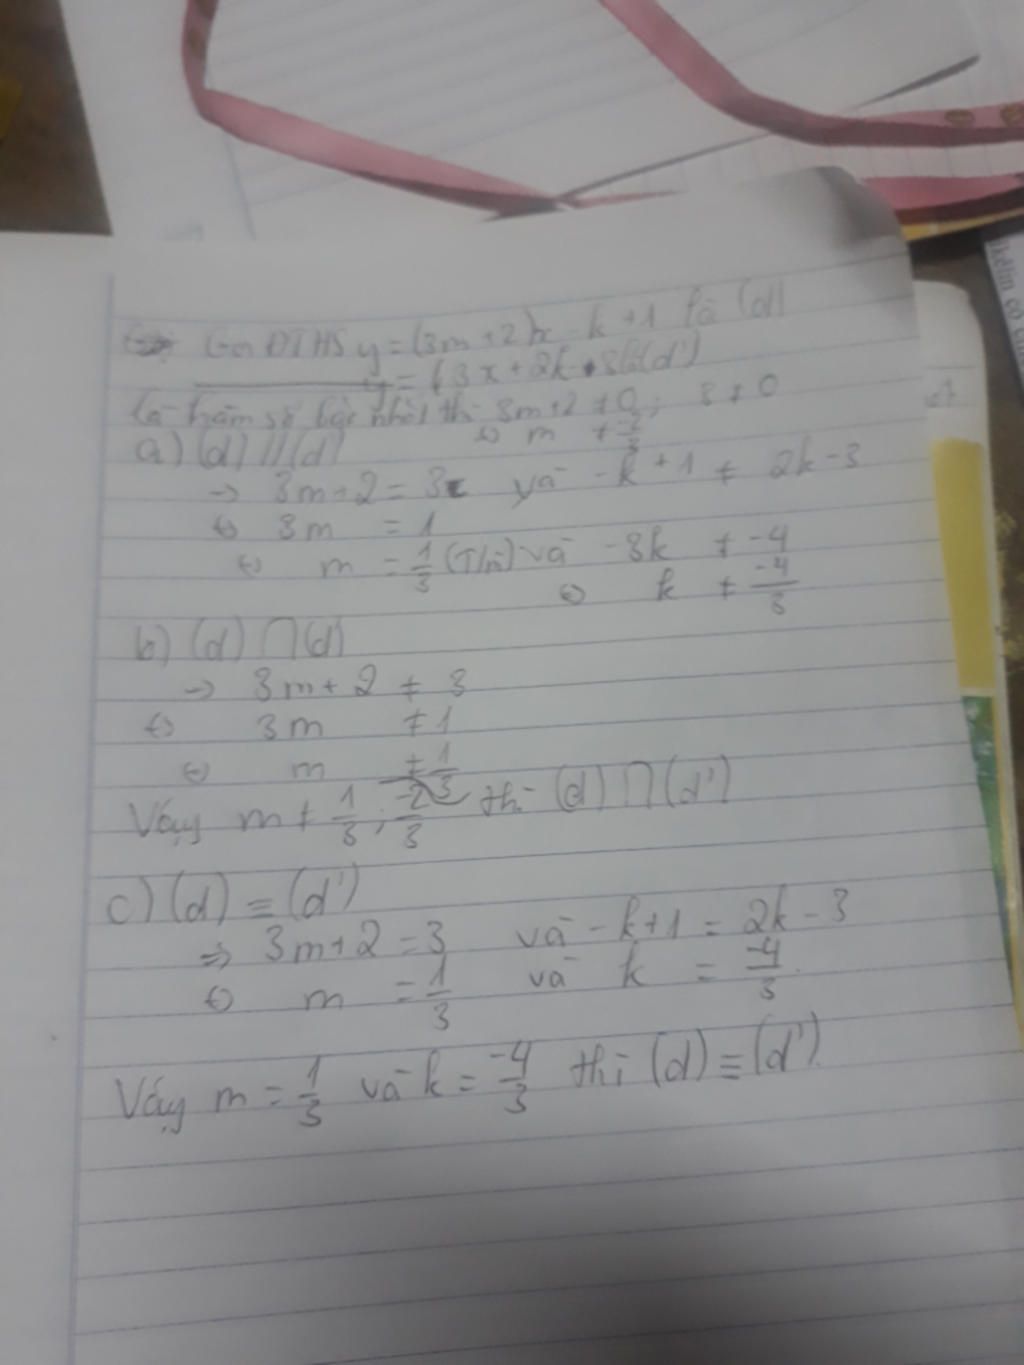 Gọi ĐTHS y = (3m+2)x - k +1 là (d)
y = 3x + 2k - 3 là (d')
là hàm số bậc nhất thì 3m+2 ≠ 0; 3 ≠ 0
⇔ m ≠ -2/3
a) (d) // (d')
→ 3m+2 = 3 và -k+1 ≠ 2k-3
⇔ 3m = 1
⇔ m = 1/3 (T/m) và -3k ≠ -4
⇔ k ≠ -4/3
b) (d) ∩ (d')
→ 3m+2 ≠ 3
⇔ 3m ≠ 1
⇔ m ≠ 1/3
Vậy m ≠ 1/3; -2/3 thì (d) ∩ (d')
c) (d) ≡ (d')
⇒ 3m+2 = 3 và -k+1 = 2k-3
⇔ m = 1/3 và k = -4/3
Vậy m = 1/3 và k = -4/3 thì (d) ≡ (d').
kềlim có